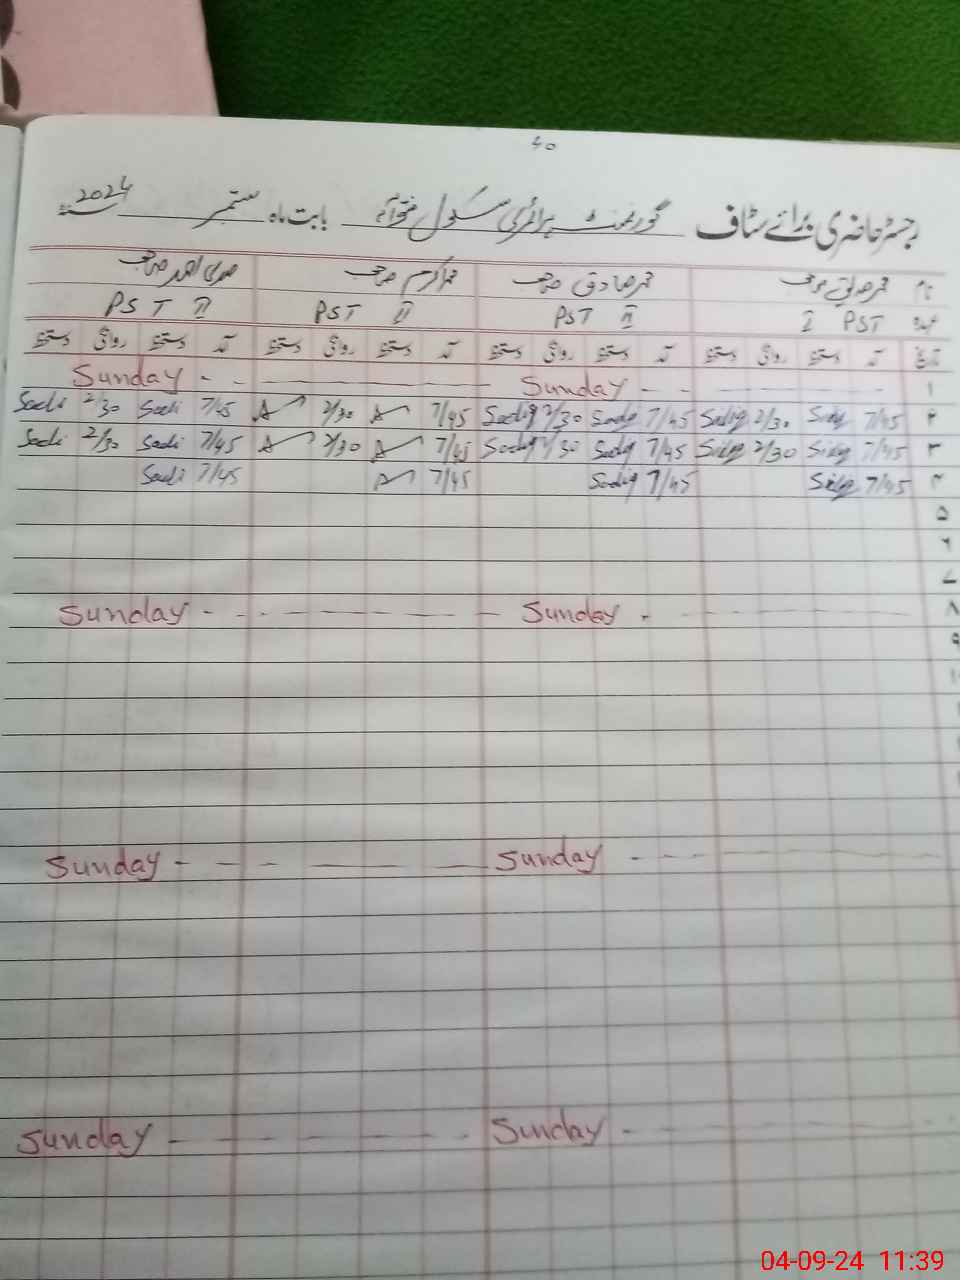 40
رجسٹر حاضری برائے سٹاف گورنمنٹ پرائمری سکول بابت ماہ ستمبر 2024
نام محمد صادق صاحب محمد اکرم صاحب
عہدہ PST I PST II PST II PST II
تاریخ آمد دستخط روانگی دستخط آمد دستخط روانگی دستخط آمد دستخط روانگی دستخط آمد دستخط روانگی دستخط
۱ Sunday Sunday
۲ 7/45 2/30 7/45 Sadiq 2/30 Sadiq 7/45 2/30 7/45 Sadi 2/30 Sadi
۳ 7/45 2/30 7/45 Sadiq 2/30 Sadiq 7/45 2/30 7/45 Sadi 2/30 Sadi
۴ 7/45 7/45 Sadiq 7/45 7/45 Sadi
۵
۶
۷
۸ Sunday Sunday
۹
Sunday Sunday
Sunday Sunday
04-09-24 11:39